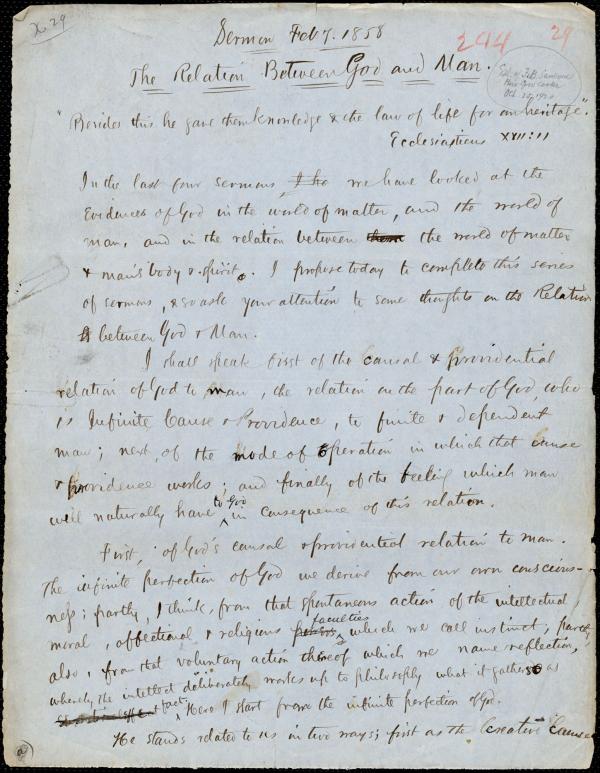 X 29
Sermon Feb 7. 1858
294
29
The Relation Between God and Man.
Oct.
"Besides this he gave them knowledge & the law of life for an heritage."
Ecclesiasticus XVII:11
In the last four sermons, we have looked at the
Evidences of God in the world of matter, and the world of
man, and in the relation between them the world of matter
& man's body & spirit. I propose today to complete this series
of sermons, & so ask your attention to some thoughts on the Relation
between God & Man.
I shall speak first of the causal & providential
relation of God to man, the relation on the part of God, who
is Infinite Cause & Providence, to finite & dependent
man; next, of the mode of operation in which that cause
& providence works; and finally of the feeling which man
will naturally have to God in consequence of this relation.
First, of God's causal & providential relation to man.
The infinite perfection of God we derive from our own conscious-
ness; partly, I think, from that spontaneous action of the intellectual,
moral, affectional & religious powers faculties which we call instinct; partly
also, from that voluntary action thereof which we name reflection,
whereby the intellect deliberately works up to philosophy what it gathers as
fact. Here I start from the infinite perfection of God.
He stands related to us in two ways; first as the Creative Cause